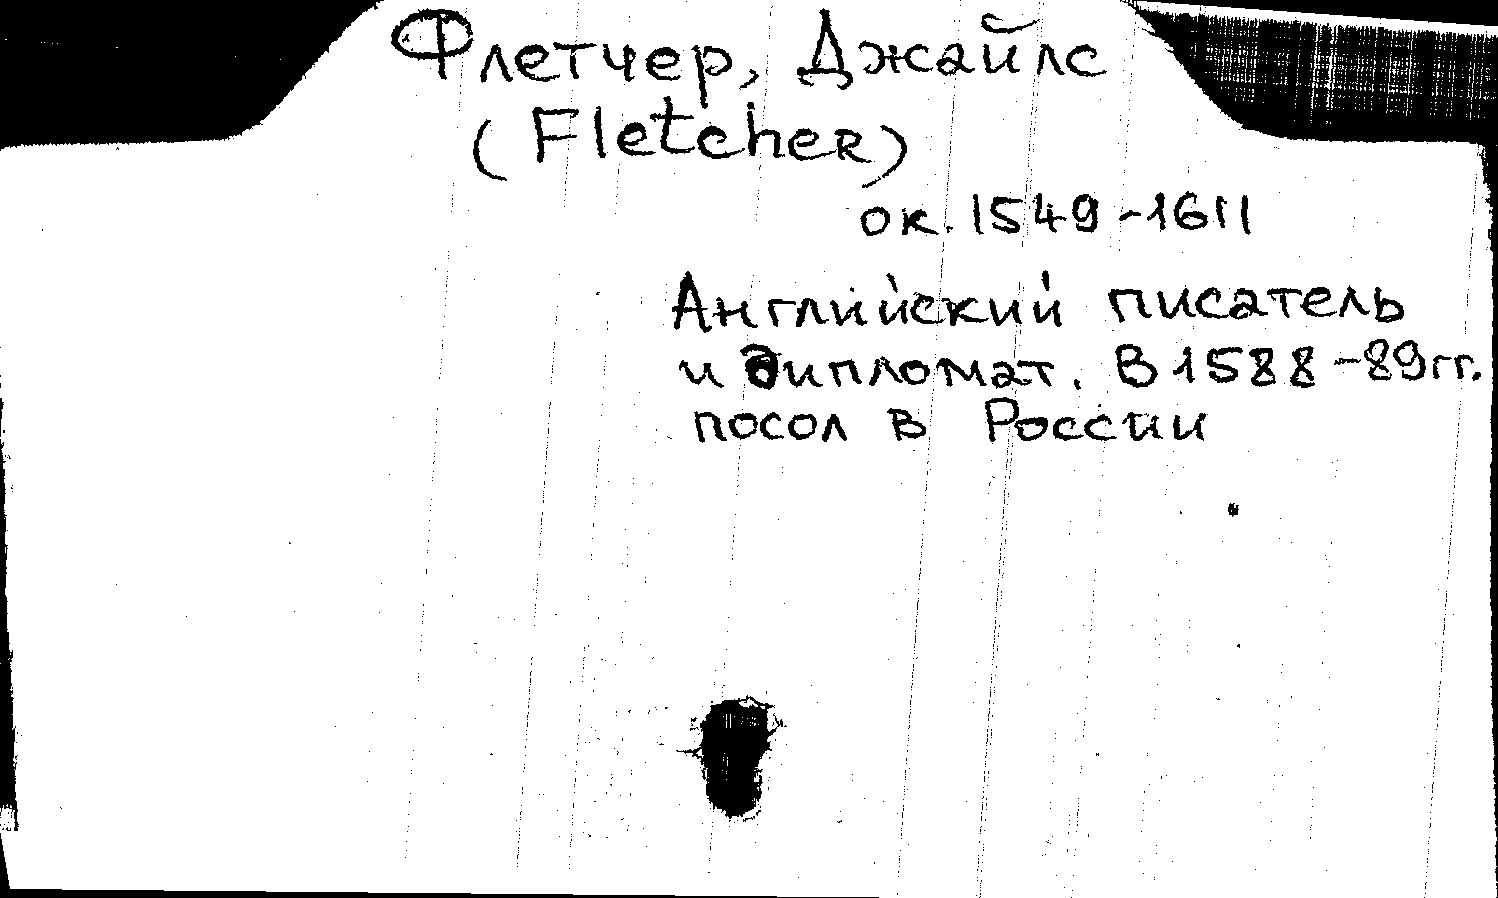 Флетчер, Джайлс
(Fletcher)
ок. 1549-1611
Английский писатель
и дипломат. В 1588-89гг.
посол в России